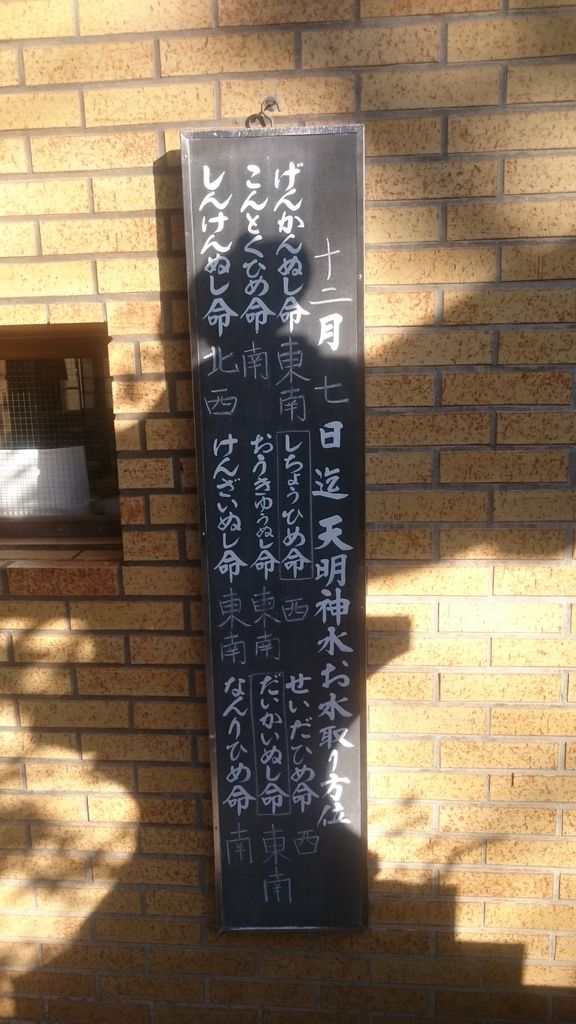 十二月七日迄天明神水お水取り方位
げんかんぬし命東南
こんとくひめ命南
しんけんぬし命北西
しちょうひめ命西
おうきゆうぬし命東南
けんざいぬし命東南
せいだひめ命西
だいかいぬし命東南
なんりひめ命南